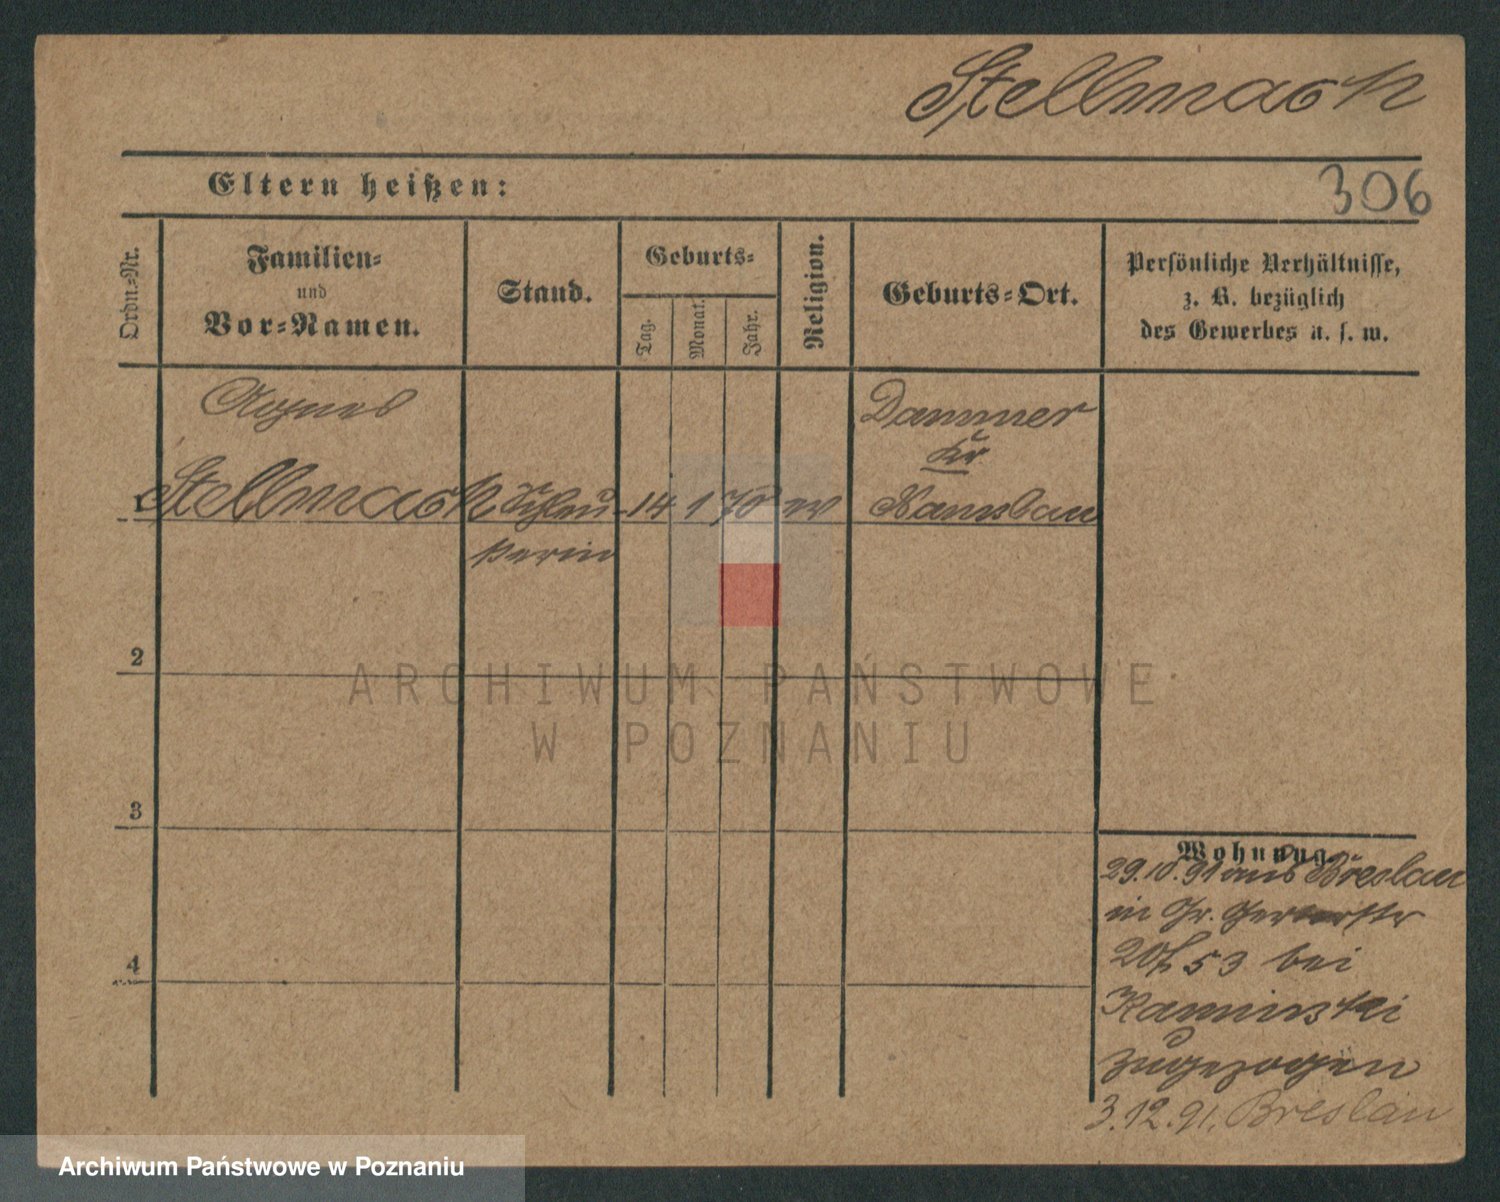 Stellmach
Eltern heißen:
306
Ordn.-Nr.
Familien-
und
Vor-Namen.
Stand.
Geburts-
Tag.
Monat.
Jahr.
Religion.
Geburts-Ort.
Persönliche Verhältnisse,
z. B. bezüglich
des Gewerbes u. s. w.
Agnes
Dammer
Kr
1 Stellmach Schleu- 14 1 70 ev Namslau
ßerin
2
ARCHIWUM PAŃSTWOWE
W POZNANIU
3
Wohnung.
29.10.91 aus Breslau
in Gr. Gerberstr
53 bei
4
Kaminski
zugezogen
3.12.91. Breslau
Archiwum Państwowe w Poznaniu